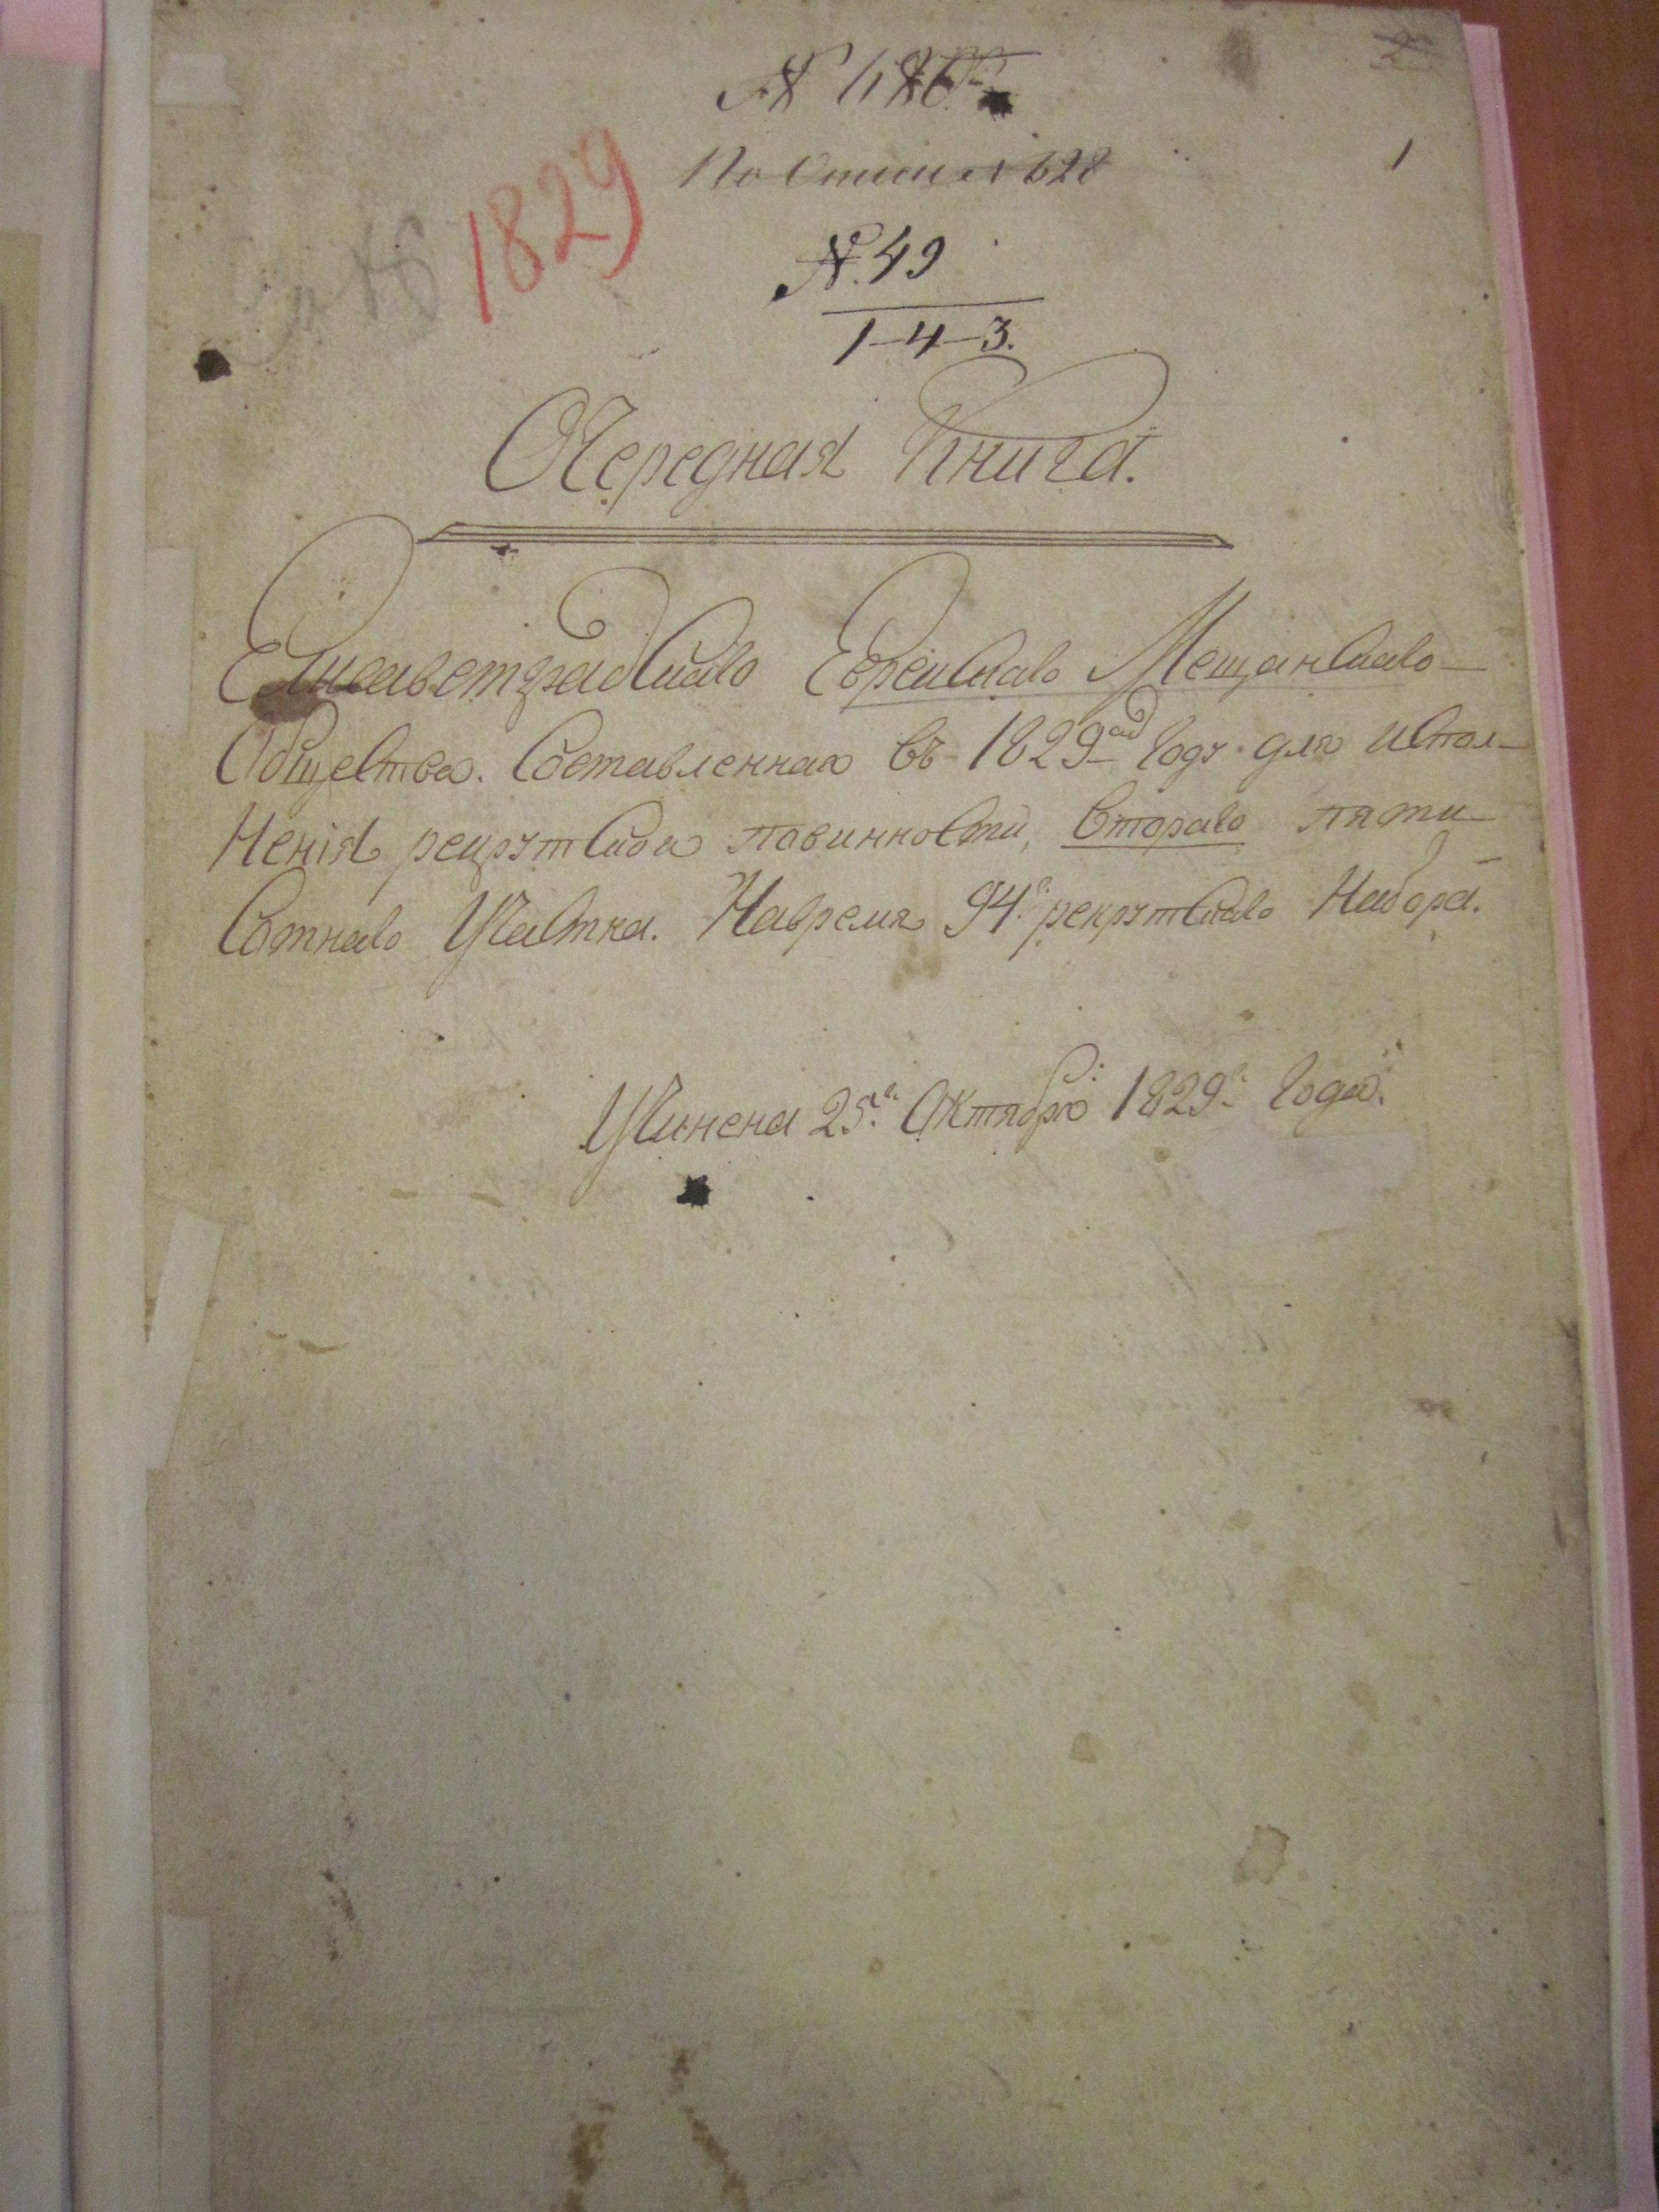 1
По Описи № 628
1829
№ 49
1-4-3.
Очередная Книга.
Елисаветградскаго Еврейскаго Мещанскаго
Общества. Составленная въ 1829ᵐ году для испол-
ненія рекрутской повинности, втораго пяти-
сотнаго Участка. На время 94ᵍᵒ рекрутскаго Набора.
Учинена 25ᵍᵒ Октября 1829ᵍᵒ года.